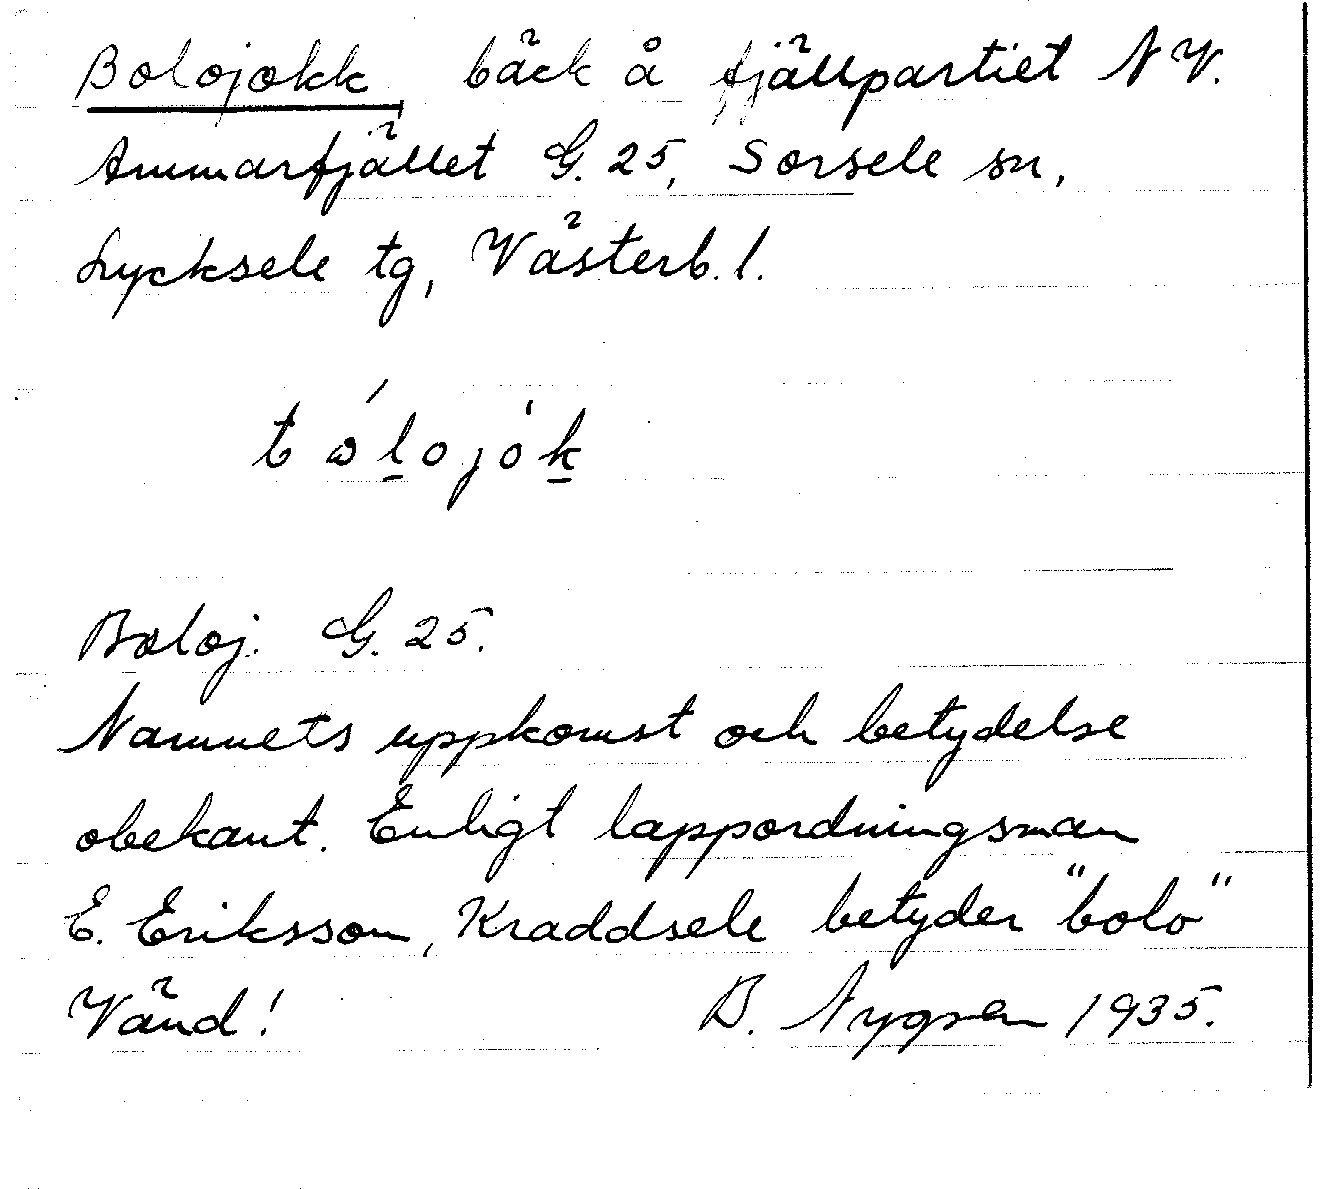 Bolojokk bäck å fjällpartiet N V.
Ammarfjället G. 25, Sorsele sn,
Lycksele tg, Västerb. l.
Boloj. G. 25.
Namnets uppkomst och betydelse
obekant. Enligt lappordningsman
E. Eriksson, Kraddsele betyder "bolo"
Vänd! B. 1935.